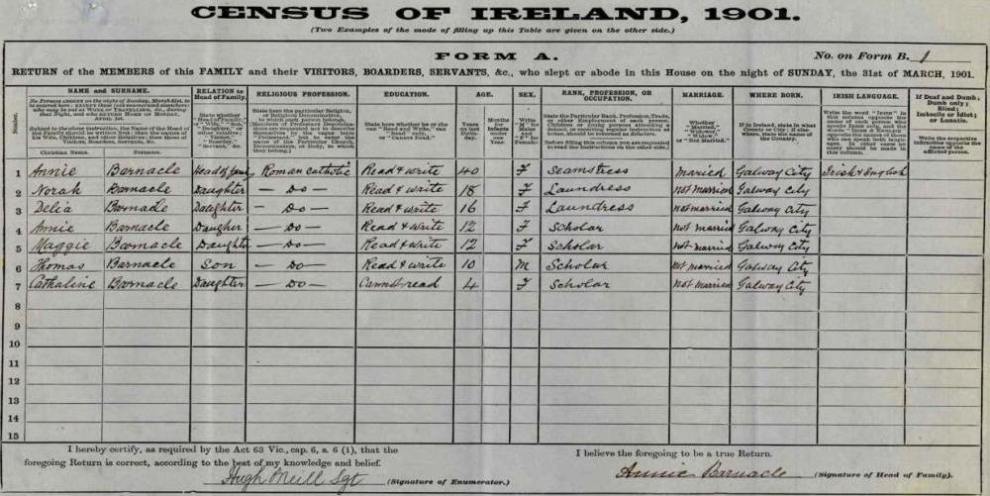 CENSUS OF IRELAND, 1901.
(Two Examples of the mode of filling up this Table are given on the other side.)
FORM A.
No. on Form B. 1
RETURN of the MEMBERS of this FAMILY and their VISITORS, BOARDERS, SERVANTS, &c., who slept or abode in this House on the night of SUNDAY, the 31st of MARCH, 1901.
Number. NAME and SURNAME. RELATION to Head of Family. RELIGIOUS PROFESSION. EDUCATION. AGE. SEX. RANK, PROFESSION, OR OCCUPATION. MARRIAGE. WHERE BORN. IRISH LANGUAGE. If Deaf and Dumb; Dumb only; Blind; Imbecile or Idiot; or Lunatic.
Christian Name. Surname.
1 Annie Barnacle Head of Roman Catholic Read & write 40 F Seamstress Maried Galway City Irish & English
2 Norah Barnacle Daughter — Do — Read & write 18 F Laundress not Married Galway City
3 Delia Barnacle Daughter — Do — Read & write 16 F Laundress not married Galway City
4 Annie Barnacle Daugher — Do — Read & Write 12 F Scholar Not married Galway City
5 Maggie Barnacle — Do — Read & write 12 F Scholar Not married Galway City
6 Thomas Barnacle Son — Do — Read & write 10 M Scholar Not married Galway City
7 Cathaline Barnacle Daughter — Do — Cannot read 4 F Scholar Not Married Galway City
8
9
10
11
12
13
14
15
I hereby certify, as required by the Act 63 Vic., cap. 6, s. 6 (1), that the
foregoing Return is correct, according to the best of my knowledge and belief.
Hugh Neill Sgt (Signature of Enumerator.)
I believe the foregoing to be a true Return.
Annie Barnacle (Signature of Head of Family).